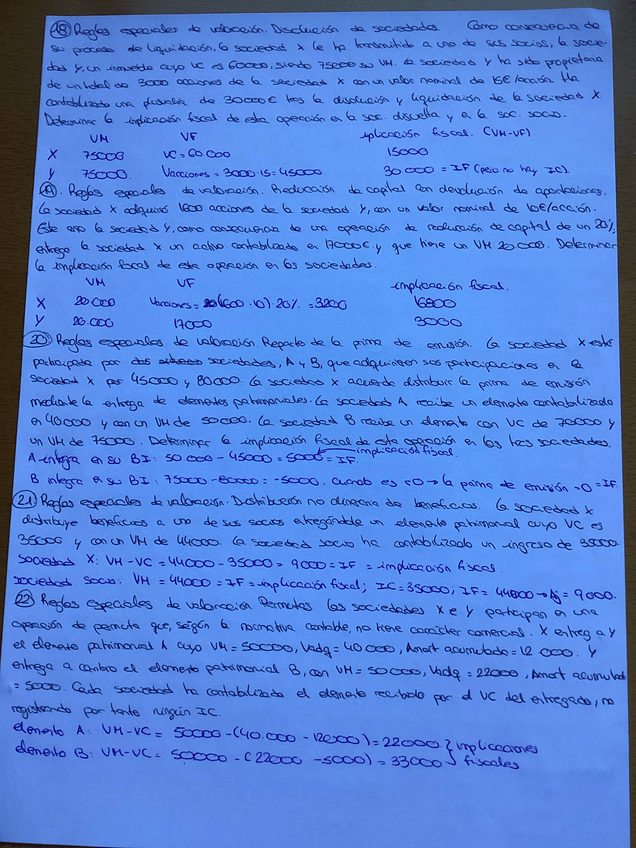 18 Reglas especiales de valoración. Disolución de sociedades Como consecuencia de
su proceso de liquidación, la sociedad X le ha transmitido a uno de sus socios, la socie-
dad Y, un inmueble cuyo VC es 60000, siendo 75000 su VM. La sociedad Y ha sido propietaria
de un total de 3000 acciones de la sociedad X con un valor nominal de 15€/acción. Ha
contabilizado una plusvalía de 30000€ tras la disolución y liquidación de la sociedad X.
Determinar la implicación fiscal de esta operación en la soc. disuelta y en la soc. socio.
VM VF implicación fiscal. (VM-VF)
X 75000 VC = 60.000 15000
Y 75000. Vacciones = 3000·15 = 45000 30.000 = IF (pero no hay IC).
19. Reglas especiales de valoración. Reducción de capital con devolución de aportaciones.
La sociedad X adquirió 1600 acciones de la sociedad Y, con un valor nominal de 10€/acción.
Este año la sociedad Y, como consecuencia de una operación de reducción de capital de un 20%,
entrega la sociedad X un activo contabilizado en 17000€ y que tiene un VM 20.000. Determinar
la implicación fiscal de esta operación en las sociedades.
VM VF implicación fiscal.
X 20.000 Vacciones = (1600·10)·20% = 3200 16800
Y 20.000 17000 3000
20 Reglas especiales de valoración. Reparto de la prima de emisión. La sociedad X esté
participada por dos sociedades, A y B, que adquirieron sus participaciones en la
sociedad X por 45000 y 80000. La sociedad X acuerda distribuir la prima de emisión
mediante la entrega de elementos patrimoniales. La sociedad A recibe un elemento contabilizado
en 40000 y con un VM de 50000. La sociedad B recibe un elemento con VC de 70000 y
un VM de 75000. Determinar la implicación fiscal de esta operación en las tres sociedades.
A integra en su BI: 50 000 - 45000 = 5000 = IF. implicación fiscal.
B integra en su BI: 75000 - 80000 = -5000. cuando es <0 → la prima de emisión =0 = IF
21 Reglas especiales de valoración. Distribución no dineraria de beneficios. La sociedad X
distribuye beneficios a uno de sus socios entregándole un elemento patrimonial cuyo VC es
35000 y con un VM de 44000. La sociedad socio ha contabilizado un ingreso de 35000.
Sociedad X: VM - VC = 44000 - 35000 = 9000 = IF = implicación fiscal
sociedad socio: VM = 44000 = IF = implicación fiscal; IC = 35000, IF = 44000 → Aj = 9000.
22 Reglas especiales de valoración Permutas Las sociedades X e Y participan en una
operación de permuta que, según la normativa contable, no tiene carácter comercial. X entrega a Y
el elemento patrimonial A cuyo VM = 50000, Vadq = 40 000, Amort acumulada = 12 000. Y
entrega a cambio el elemento patrimonial B, con VM = 50 000, Vadq = 22000, Amort acumulada
= 5000. Cada sociedad ha contabilizado el elemento recibido por el VC del entregado, no
registrando por tanto ningún IC.
elemento A: VM - VC = 50000 - (40.000 - 12000) = 22000 } implicaciones
elemento B: VM - VC = 50000 - (22000 - 5000) = 33000 } fiscales